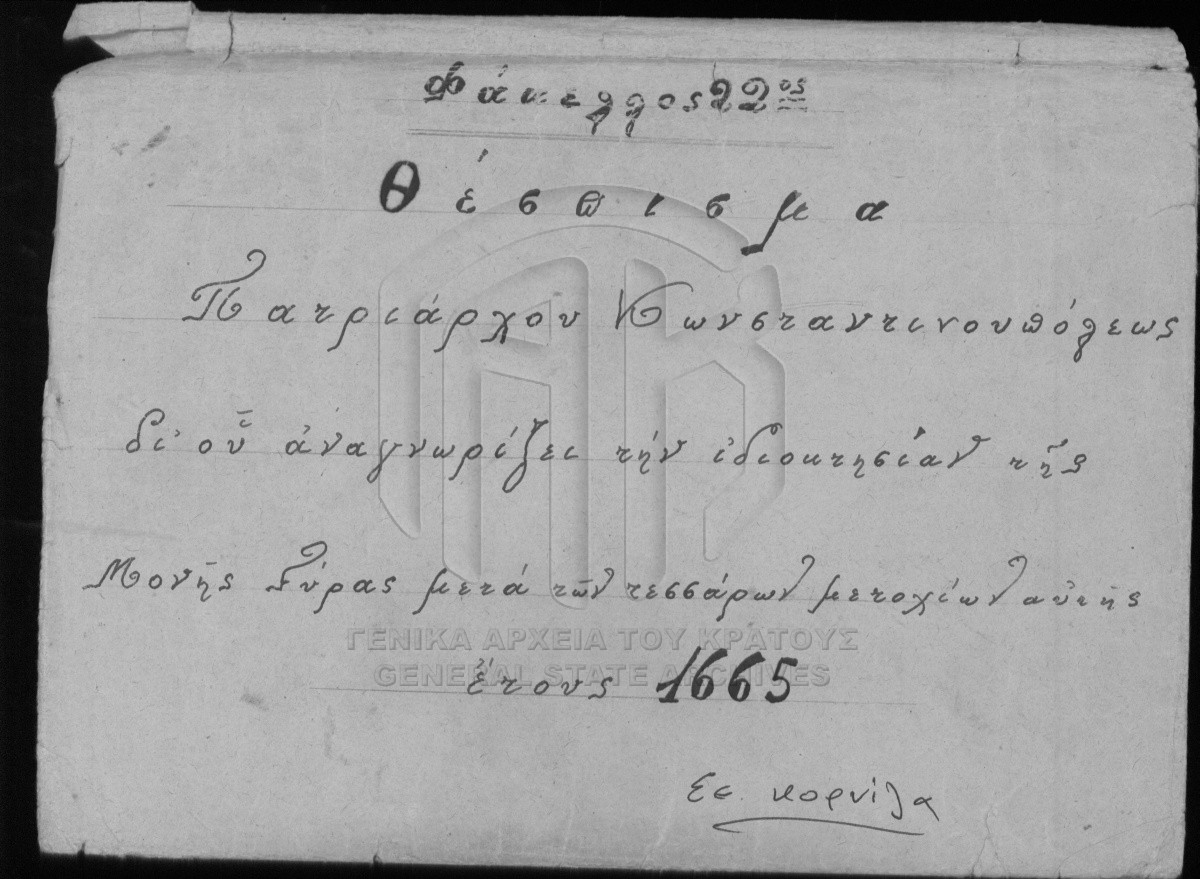 Φάκελλος 22ος
Θέσπισμα
Πατριάρχου Κωνσταντινουπόλεως
δι' οὗ ἀναγνωρίζει τήν ἰδιοκτησίαν τῆς
Μονῆς Γύρας μετά τῶν τεσσάρων μετοχίων αὐτῆς
ΓΕΝΙΚΑ ΑΡΧΕΙΑ ΤΟΥ ΚΡΑΤΟΥΣ
GENERAL STATE ARCHIVES
ἔτους 1665
κορνίζα